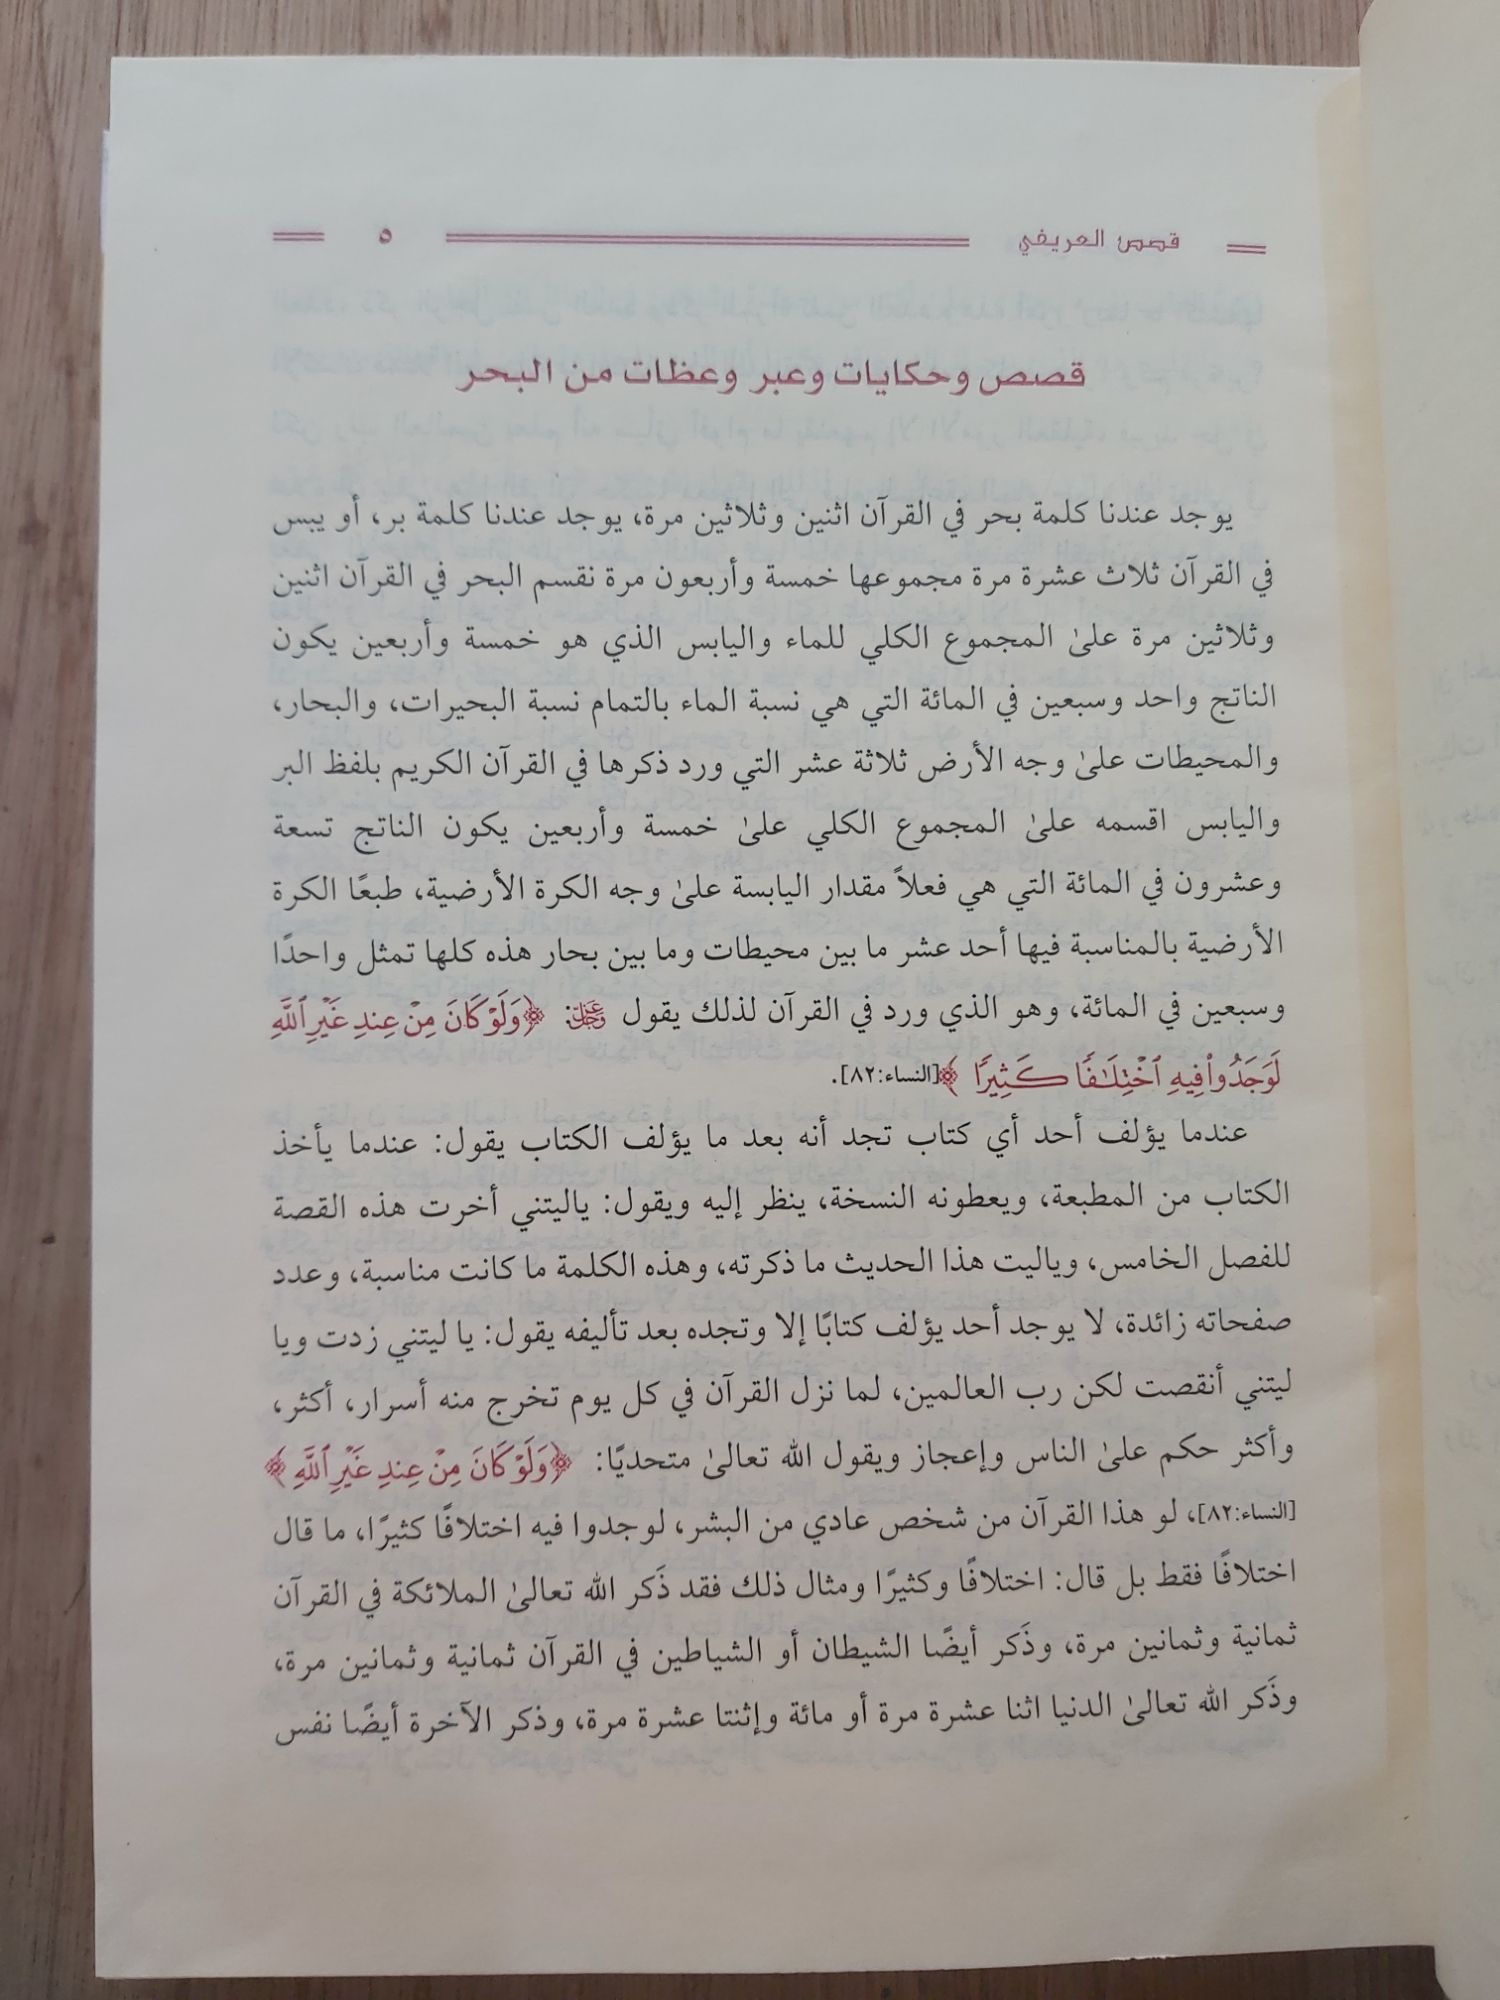 قصص العريفي ٥
قصص وحكايات وعبر وعظات من البحر
يوجد عندنا كلمة بحر في القرآن اثنين وثلاثين مرة، يوجد عندنا كلمة بر، أو يبس
في القرآن ثلاث عشرة مرة مجموعها خمسة وأربعون مرة نقسم البحر في القرآن اثنين
وثلاثين مرة علىٰ المجموع الكلي للماء واليابس الذي هو خمسة وأربعين يكون
الناتج واحد وسبعين في المائة التي هي نسبة الماء بالتمام نسبة البحيرات، والبحار،
والمحيطات علىٰ وجه الأرض ثلاثة عشر التي ورد ذكرها في القرآن الكريم بلفظ البر
واليابس اقسمه علىٰ المجموع الكلي علىٰ خمسة وأربعين يكون الناتج تسعة
وعشرون في المائة التي هي فعلاً مقدار اليابسة علىٰ وجه الكرة الأرضية، طبعًا الكرة
الأرضية بالمناسبة فيها أحد عشر ما بين محيطات وما بين بحار هذه كلها تمثل واحدًا
وسبعين في المائة، وهو الذي ورد في القرآن لذلك يقول عز وجل: ﴿وَلَوْ كَانَ مِنْ عِندِ غَيْرِ ٱللَّهِ
لَوَجَدُوا۟ فِيهِ ٱخْتِلَـٰفًا كَثِيرًا ﴾[النساء:٨٢].
عندما يؤلف أحد أي كتاب تجد أنه بعد ما يؤلف الكتاب يقول: عندما يأخذ
الكتاب من المطبعة، ويعطونه النسخة، ينظر إليه ويقول: ياليتني أخرت هذه القصة
للفصل الخامس، وياليت هذا الحديث ما ذكرته، وهذه الكلمة ما كانت مناسبة، وعدد
صفحاته زائدة، لا يوجد أحد يؤلف كتابًا إلا وتجده بعد تأليفه يقول: يا ليتني زدت ويا
ليتني أنقصت لكن رب العالمين، لما نزل القرآن في كل يوم تخرج منه أسرار، أكثر،
وأكثر حكم علىٰ الناس وإعجاز ويقول الله تعالىٰ متحديًا: ﴿وَلَوْ كَانَ مِنْ عِندِ غَيْرِ ٱللَّهِ﴾
[النساء:٨٢]، لو هذا القرآن من شخص عادي من البشر، لوجدوا فيه اختلافًا كثيرًا، ما قال
اختلافًا فقط بل قال: اختلافًا وكثيرًا ومثال ذلك فقد ذَكر الله تعالىٰ الملائكة في القرآن
ثمانية وثمانين مرة، وذَكر أيضًا الشيطان أو الشياطين في القرآن ثمانية وثمانين مرة،
وذَكر الله تعالىٰ الدنيا اثنا عشرة مرة أو مائة وإثنتا عشرة مرة، وذكر الآخرة أيضًا نفس